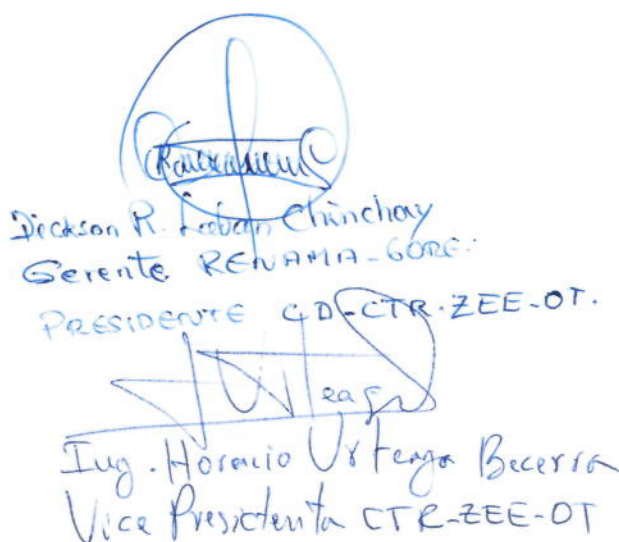 Dickson R. Laban Chinchay
Gerente RENAMA-GORE.
PRESIDENTE CD-CTR-ZEE-OT.
Ing. Horacio Urteaga Becerra
Vice Presidente CTR-ZEE-OT